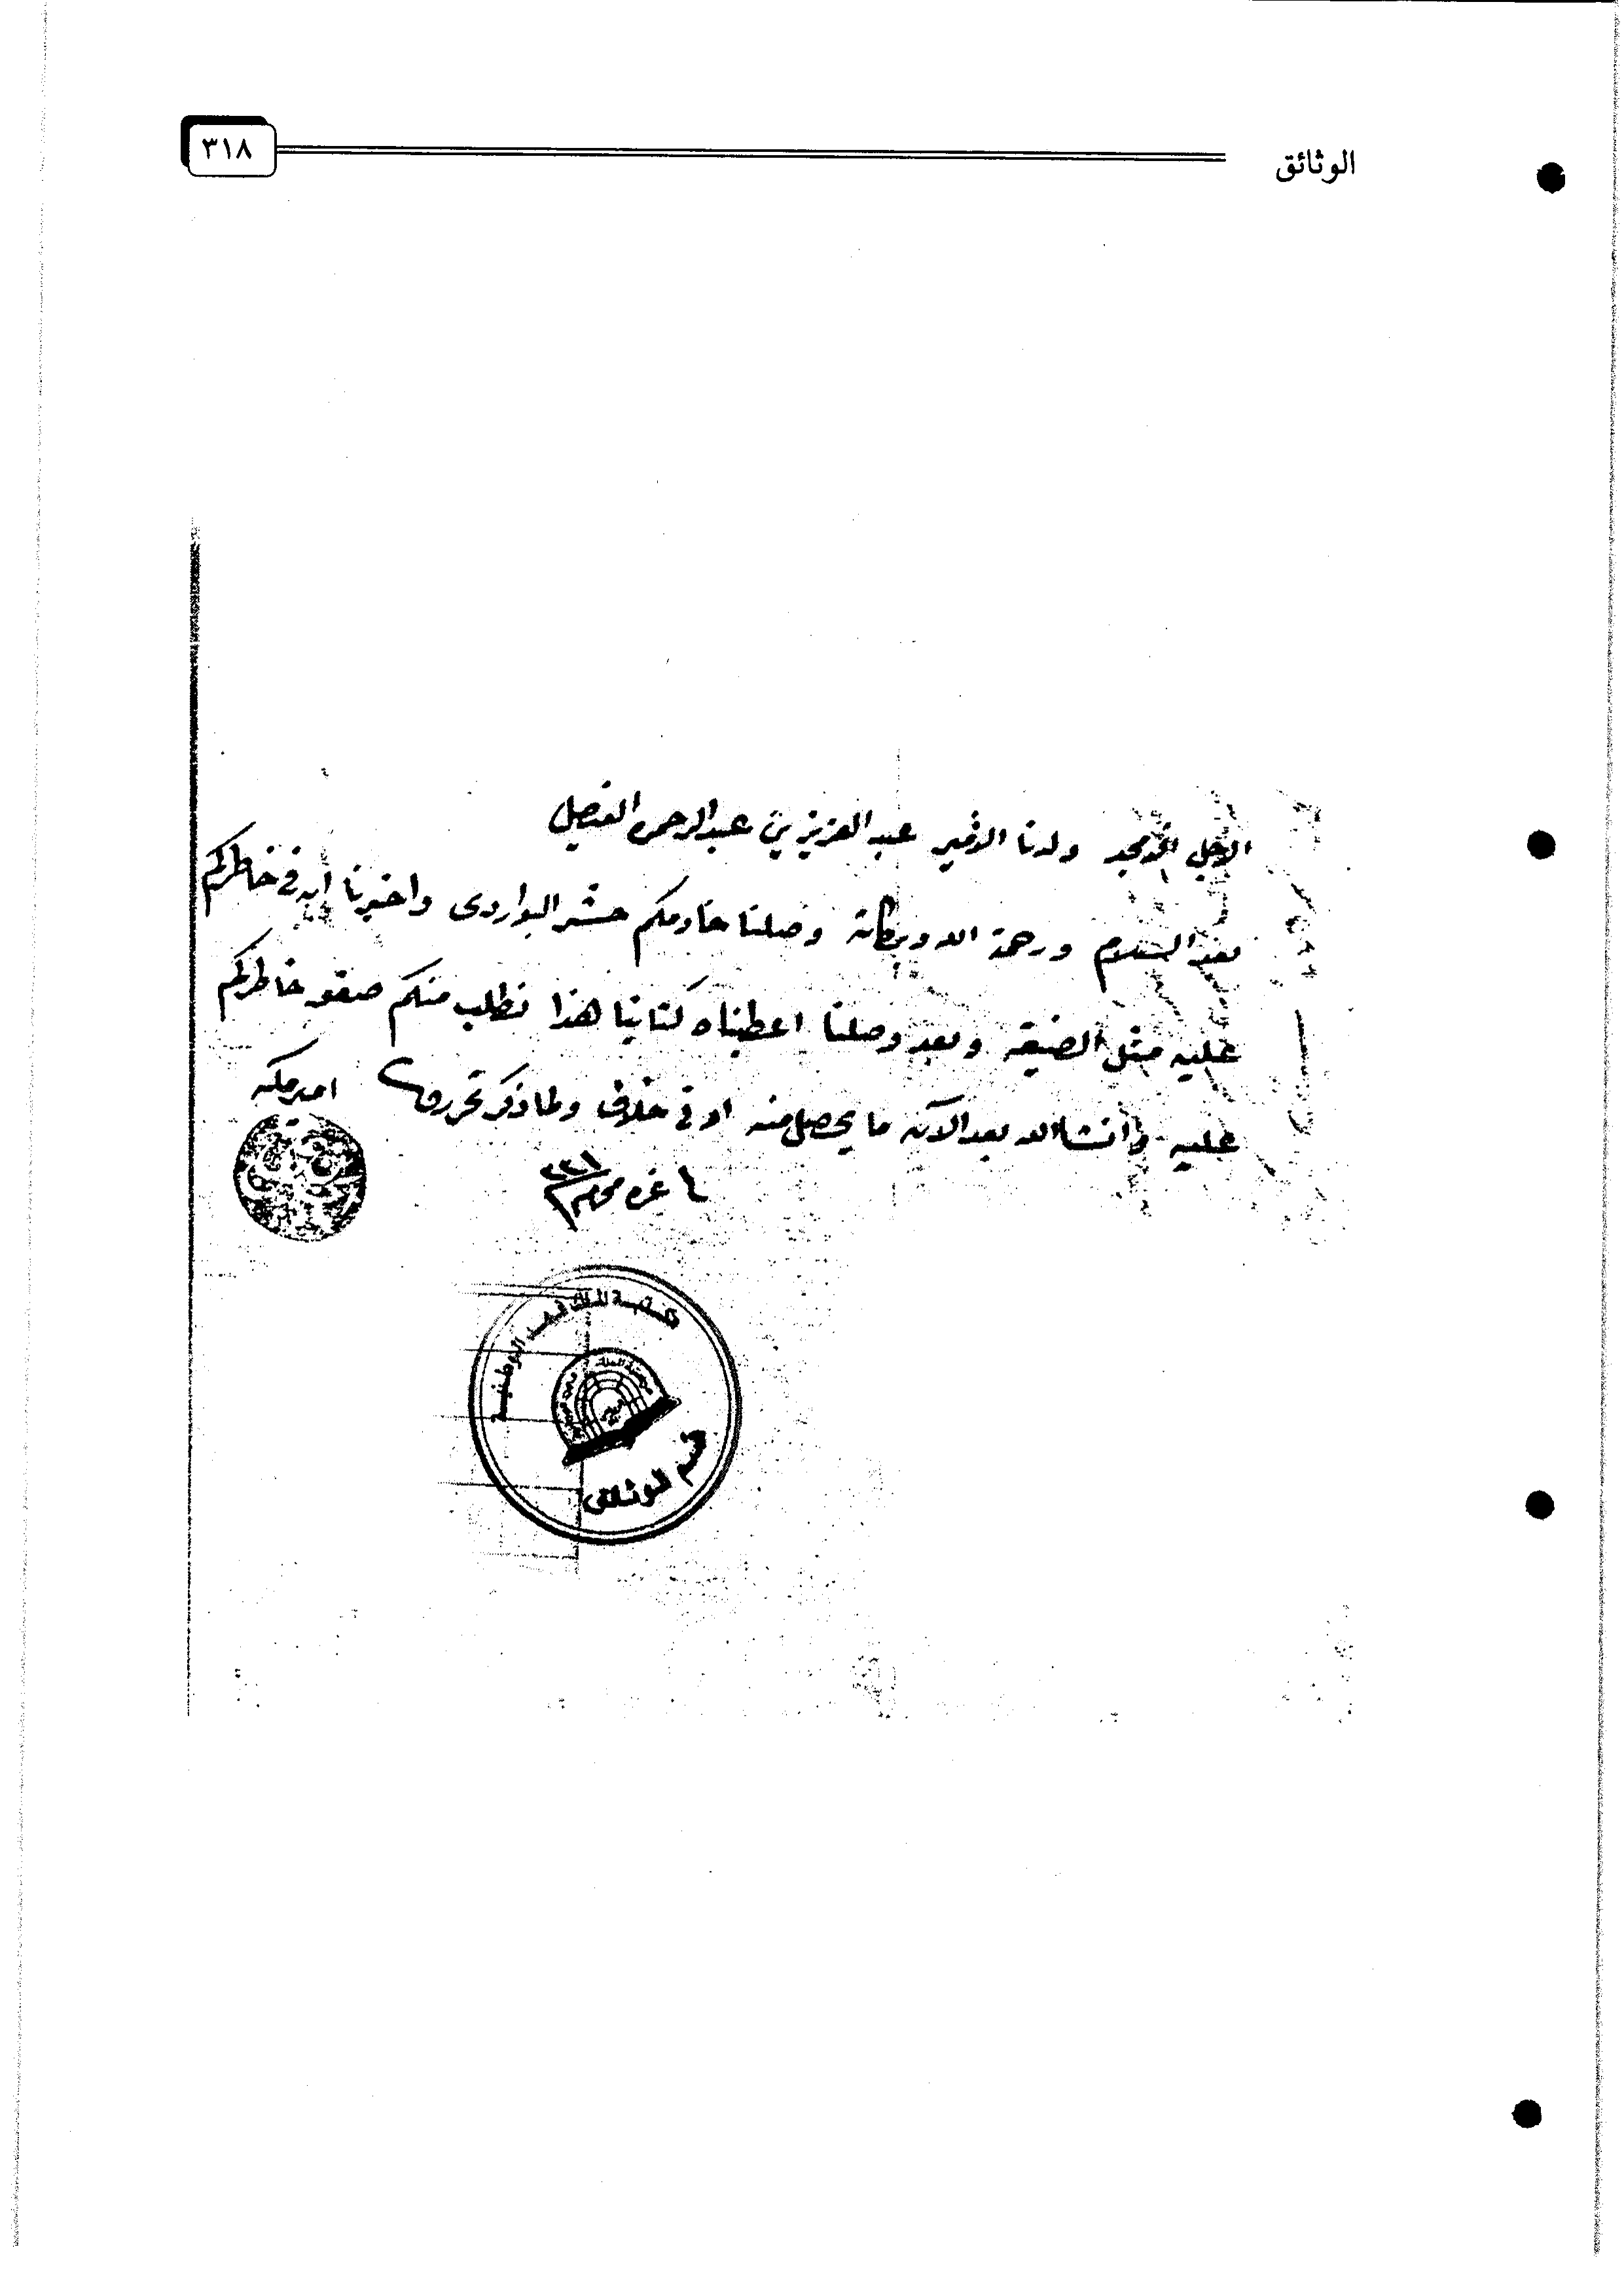 الوثائق
٣١٨
الاجل الامجد ولدنا الامير عبد العزيز بن عبدالرحمن الفيصل
بعد السلام ورحمة الله وبركاته وصلنا خادمكم حشر البواردى واخبرنا ان في خاطركم
عليه مثل الضيقه وبعد وصلنا اعطيناه كتابنا هذا نطلب منكم صفو خاطركم
عليه وانشاالله بعد الآن ما يحصل منه ادنى خلاف ولما ذكر تحرر
امير مكه
غره محرم
مكتبة الملك فهد الوطنية
قسم الوثائق